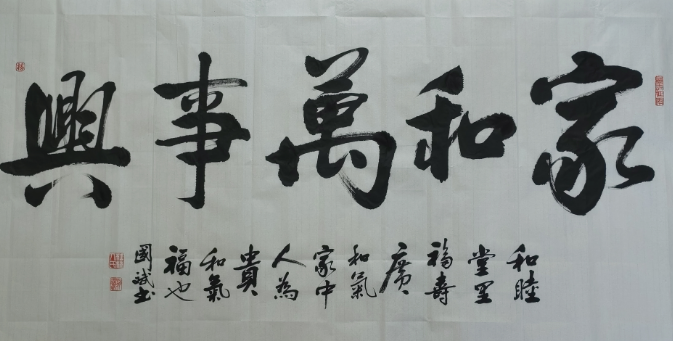 家和萬事興
和睦
堂里
福壽
廣
和氣
家中
人為
貴
和氣
福也
國斌书